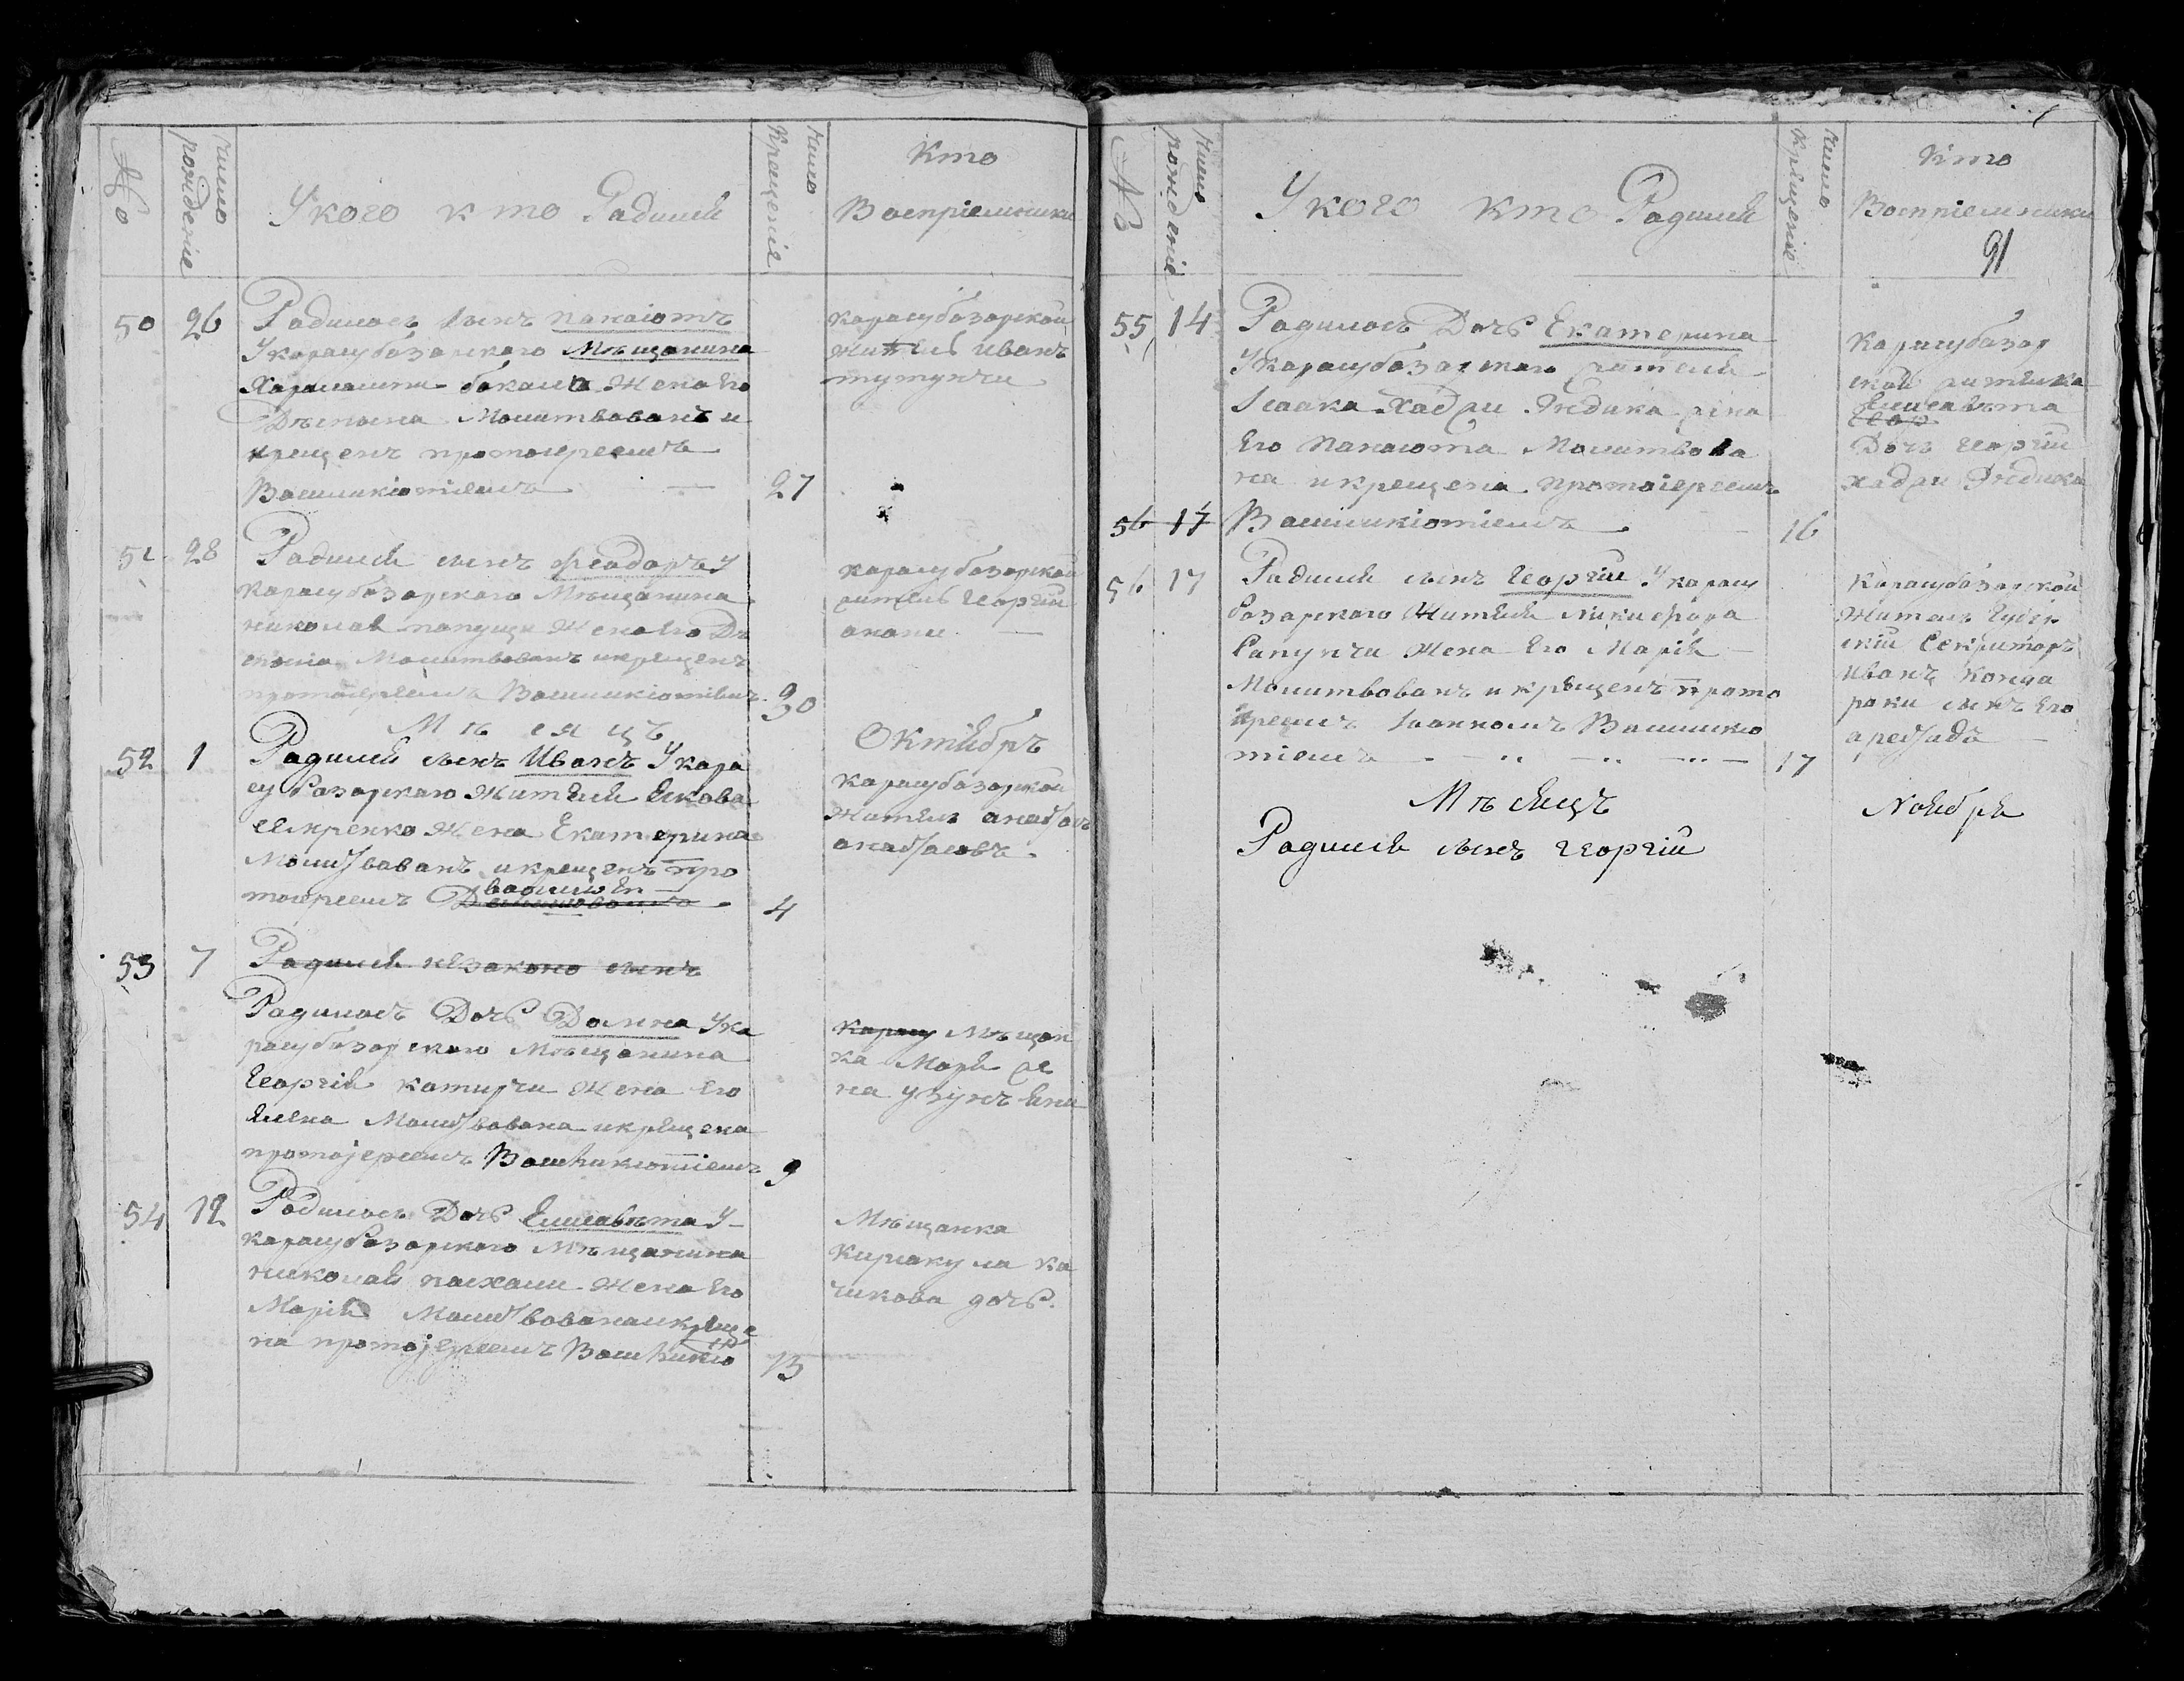 №
число рожденiе
У кого кто Радилсй
число Крещенiя
Кто
Воспрiемники
50 26
Радилось сынъ панаiотъ
У карасубазарского Мѣщанина
Харалампи бакала Жена Его
Дѣспина Молитвованъ и
крещенъ протоиереемъ
Василикiотiемъ 27
карасубазарской
житель иванъ
тутунчи
51 28
Радилсй сынъ феадоръ У
карасубазарского Мѣщанина
николай папуци Жена Его Дѣ
спина Молитвованъ и крещенъ
протоiереемъ Василикiотiемъ 30
карасубазарской
житель Георгiй
Мѣсяцъ Октябръ
52 1
Радилсй сынъ Иванъ У кара
су базарского Жителй Якова
Жена Екатерина
Молитвованъ и крещенъ про
тоиреемъ 4
карасубазарской
Житель
53 7
Радилсй незаконо сынъ
Радилось Дочь Домна У ка
расубазарского Мѣщанина
Георгiй катирчи Жена Его
Елена Молитвована и крещена
протоjереемъ Василикиотiемъ 9
карасу Мѣщан
ка Марй
54 12
Радилось Дочь Елисавѣта У
карасубазарского Мѣщанина
николай пасхали Жена Его
Марiй Молитвована и креще
на протоjереемъ Василикио 13
Мѣщанка
Кириакула ка
чикова дочь.
№
число рожденiе
У кого кто Радилсй
число Крещенiе
Кто
Воспрiемники
91
55 14
Радилось Дочь Екатерина
У карасубазарского жителй
Исаака Хаджи Яндика жена
Его Панаиота Молитвова
на и крещена протоiереемъ
56 17
Василикiотiемъ 16
Карасубазар
ской жителка
Елисавѣта
Дочь Георгiй
хаджи Яндика
56 17
Радилсй сынъ Георгiй У карасу
базарского Жителй никифора
Сапунчи Жена Его Марiй
Молитвованъ и крещенъ прото
иреемъ Iоанномъ Василикио
тiемъ 17
Карасубазарской
Житель Губер
скiй Секритаръ
Иванъ Конда
раки сынъ Его
Мѣсяцъ Ноябрй
Радилсй сынъ георгiй